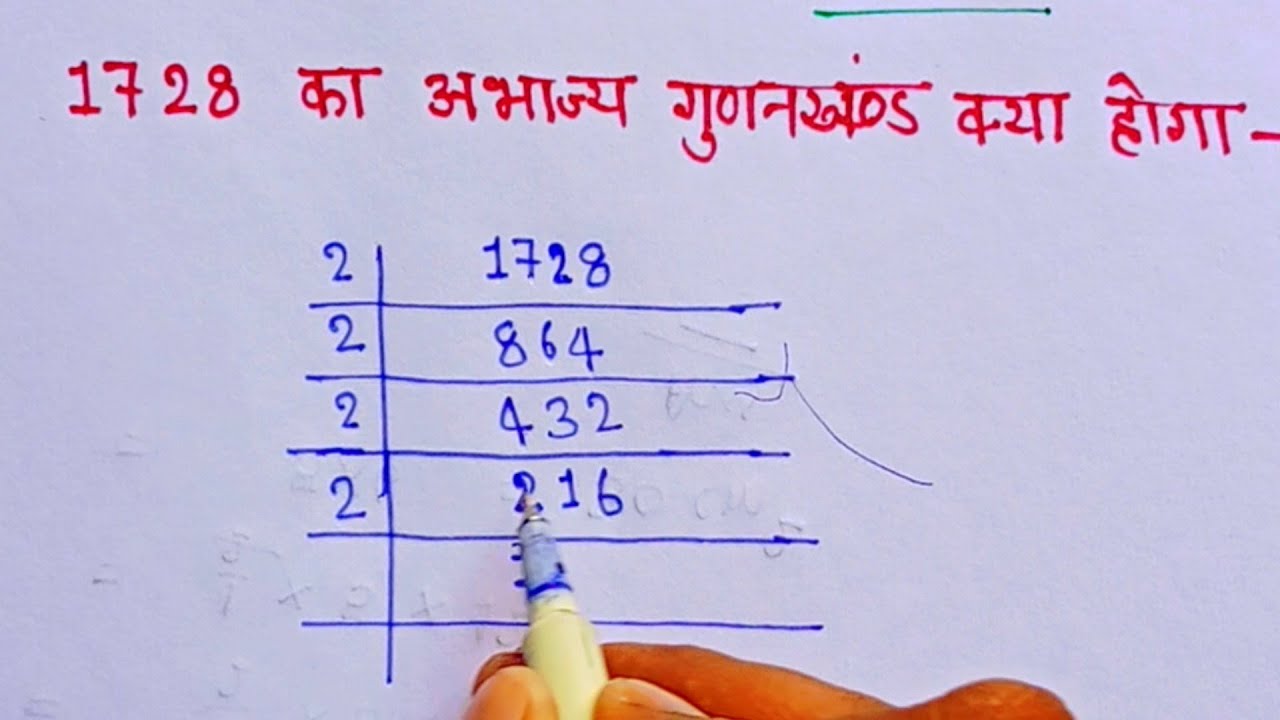 1728 का अभाज्य गुणनखंण्ड क्या होगा-
2 1728
2 864
2 432
2 216